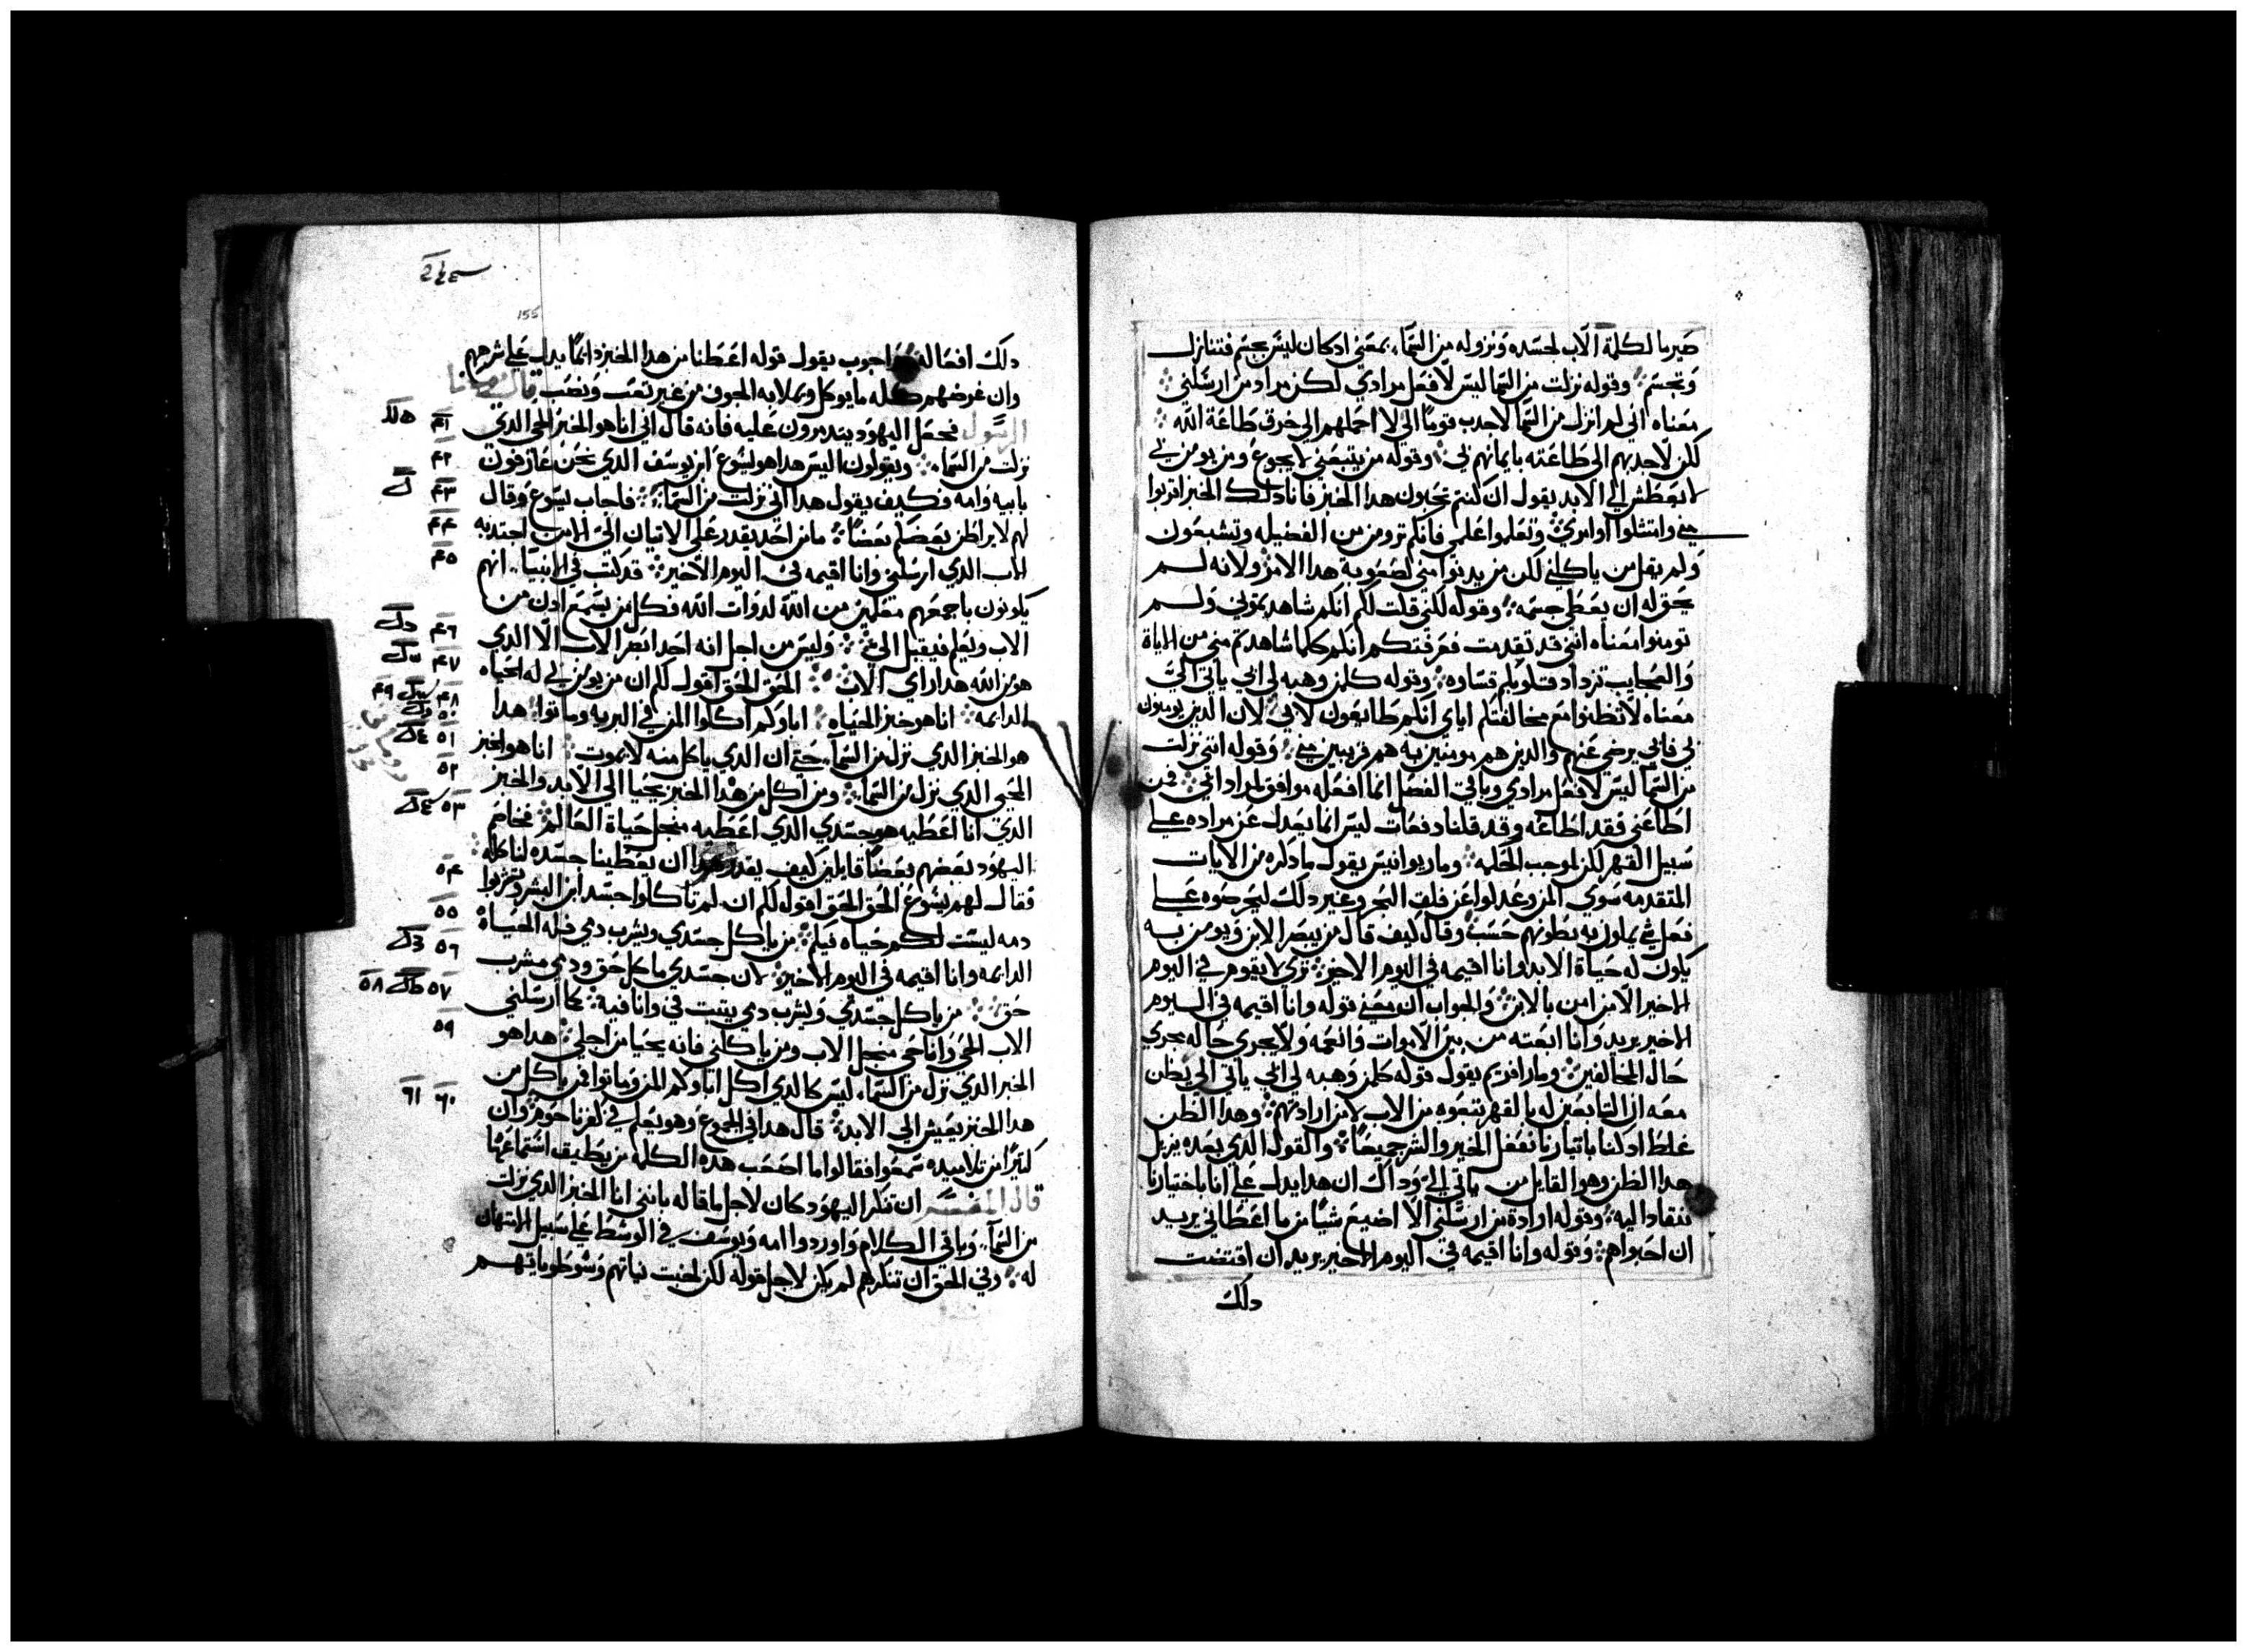 صيرنا لكلمة الاب لجسده ونزوله من السماء بمعنى اد كان ليس بجسم فتنازل
وتجسم وقوله نزلت من السما ليس لافعل مرادي لكن مراد من ارسلني
معناه انى لم انزل من السما لاجدب قوما الي لا احملهم الي خرق طاعة الله
لكن لاجدبهم الى طاعته بايمانهم بي وقوله من يتبعني لا يجوع ومن يومن بي
لا يعطش الي الابد يقول ان كنتم تحبون هدا الخبز فانا دلك الخبز اقربوا
مني وامتثلوا اوامري وتعلموا علمي فانكم تروون من الفضيله وتشبعون
ولم يقل من ياكلني لكن من يدنوا مني لصعوبة هدا الامر ولانه لم
يحق له ان يعطي جسمه وقوله لكني قلت لكم انكم شاهدتموني ولم
تومنوا معناه انني قد تقدمت فعرفتكم انكم كلما شاهدتم مني من الاياة
والعجايب تزداد قلوبكم قساوه وقوله كلمن وهبه لي ابي ياتي الي
معناه لا تظنوا مع مخالفتكم اياي انكم طايعون لابي لان الدين يومنون
بي فابي يرضي عنهم والدين هم مومنين به هم قريبين مني وقوله انني نزلت
من السما ليس لافعل مرادي وباقي الفصل انما افعله موافق لمراد ابي فمن
اطاعني فقد اطاعه وقد قلنا دفعات ليس انما يعدل عن مراده علي
سبيل القهر لكن لموجب الحكمه وماريوانيس يقول ما دكره من الايات
المتقدمه سوي المن وعدلوا عن فلق البحر وغير دلك ليحرضوه علي
فعل شي يملون به بطونهم حسب وقال كيف قال من يبصر الابن ويومن به
يكون له حياة الابد وانا اقيمه في اليوم الاخير تري لا يقوم في اليوم
الاخير الا من امن بالابن والجواب ان معني قوله وانا اقيمه في اليوم
الاخير يريد وانا ابعثه من بين الاموات وانعمه ولا يجري حاله مجري
حال المخالفين ومار افريم يقول قوله كلمن وهبه لي ابي ياتي الي يظن
معه ان التابعين له بالقهر تبعوه من الاب لا من ارادتهم وهدا الظن
غلط اد كنا باتيارنا نفعل الخير والشر جميعا والقول الدي بعده يزيل
هدا الظن وهو القايل من ياتي الي وداك ان هدا يدل علي انا باختيارنا
ننقاد اليه وقوله ارادة من ارسلني الا اضيع شيا من ما اعطاني يريد
ان اخبرواهم وقوله وانا اقيمه في اليوم الاخير يريد ان اقتضت
دلك
155
دلك افعاله اجوب يقول قوله اعطنا من هدا الخبز دايما يدل علي شرههم
وان غرضهم كله ما يوكل ويملا به الجوف من غير تعب ونصب قال يوحنا
الرسول فجعل اليهود يتدمرون عليه فانه قال انى انا هو الخبز الحي الدي ٤١
نزلت من السماء ويقولون اليس هدا هو يسوع ابن يوسف الدي نحن عارفون ٤٢
بابيه وامه فكيف يقول هدا اني نزلت من السما فاجاب يسوع وقال ٤٣
لهم لا يراطن بعضكم بعضا ما من احد يقدر علي الاتيان الي الا من اجتدبه ٤٤
الاب الدي ارسلني وانا اقيمه في اليوم الاخير قد كتب في الانبياء انهم ٤٥
يكونون باجمعهم متعلمين من الله لدوات الله فكل من يسمع ادن من
الاب ويعلم فيقبل الي وليس من اجل انه احد ابصر الاب الا الدي ٤٦
هو من الله هدا راي الاب الحق الحق اقول لكم ان من يومن بي له الحياه ٤٧
الدايمه انا هو خبز الحياه اباوكم اكلوا المن في البريه وماتوا هدا ٤٨ ٤٩ ٥٠
هو الخبز الدي نزل من السماء حتي ان الدي ياكل منه لا يموت انا هو الخبز ٥١
المحيي الدي نزل من السما ومن اكل من هدا الخبز يحيا الي الابد والخبز ٥٢
الدي انا اعطيه هو جسدي الدي اعطيه منجل حياة العالم فخاصم ٥٣
اليهود بعضهم بعضا قايلين كيف يقدر هدا ان يعطينا جسده لناكله
فقال لهم يسوع الحق الحق اقول لكم ان لم تاكلوا جسد ابن البشر وتشربوا ٥٤
دمه ليست لكم حياه فيكم من ياكل جسدي ويشرب دمي فله الحياة ٥٥
الدايمه وانا اقيمه في اليوم الاخير لان جسدي ماكل حق ودمي مشرب ٥٦
حق من ياكل جسدي ويشرب دمي يثبت في وانا فيه كما ارسلني ٥٧ ٥٨
الاب الحي وانا حي منجل الاب ومن ياكلني فانه يحيا من اجلي هدا هو ٥٩
الخبز الدي نزل من السماء ليس كالدي اكل اباوكم المن وماتوا فمن ياكل من
هدا الخبز يعيش الي الابد قال هدا في الجموع وهو يعلم في كفرناحوم وان ٦٠ ٦١
كثيرا من تلاميده سمعوا فقالوا ما اصعب هده الكلمه من يطيق استماعها
قال المفسر ان تنكر اليهود كان لاجل ما قاله بانني انا الخبز الدي نزلت
من السماء وباقي الكلام واوردوا امه ويوسف في الوسط علي سبيل الامتهان
له وفي الحق ان تنكرهم لم يكن لاجل قوله لكن لخبث نياتهم وسو طوياتهم